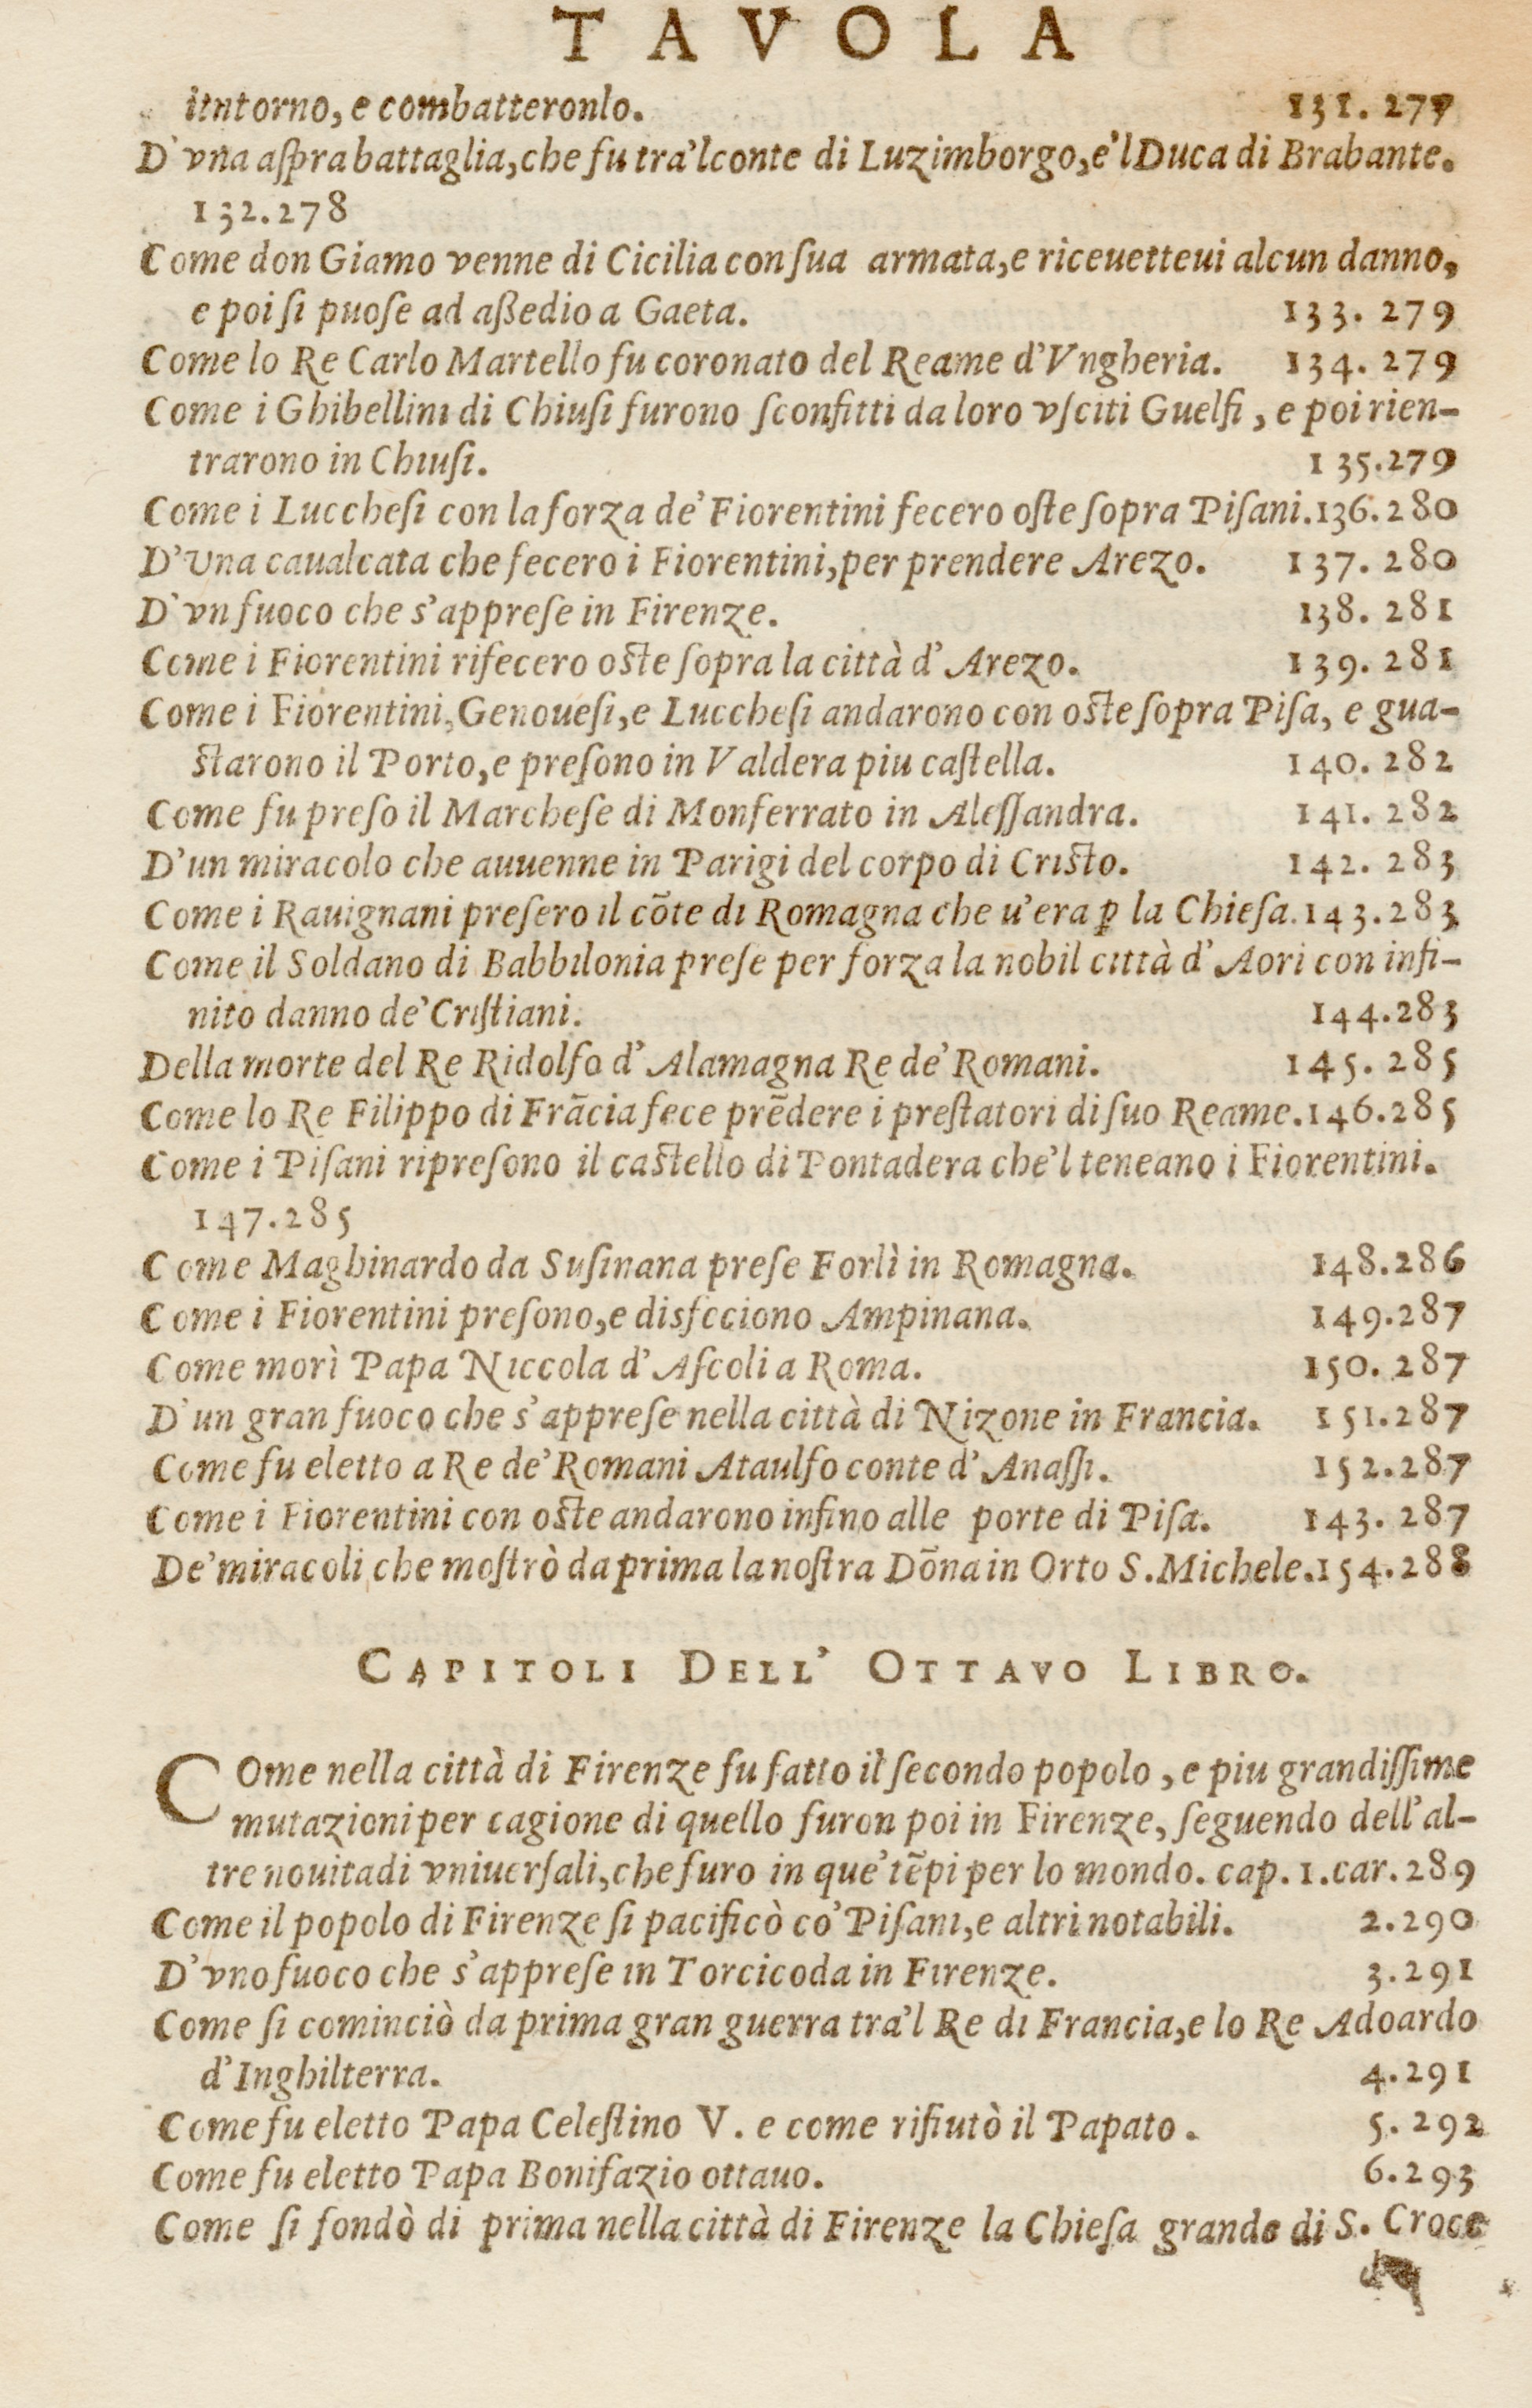 TAVOLA
itntorno, e combatteronlo. 131. 277
D'vna aſpra battaglia, che fu tra'l conte di Luzimborgo, e'l Duca di Brabante.
132.278
Come don Giamo venne di Cicilia con ſua armata, e riceuetteui alcun danno,
e poi ſi puoſe ad aßedio a Gaeta. 133. 279
Come lo Re Carlo Martello fu coronato del Reame d'Vngheria. 134. 279
Come i Ghibellini di Chiuſi furono ſconfitti da loro vſciti Guelfi, e poi rien-
trarono in Chiuſi. 135.279
Come i Luccheſi con la forza de' Fiorentini fecero oſte ſopra Piſani. 136. 280
D'Vna caualcata che fecero i Fiorentini, per prendere Arezo. 137. 280
D'vn fuoco che s'appreſe in Firenze. 138. 281
Come i Fiorentini rifecero oſte ſopra la città d'Arezo. 139. 281
Come i Fiorentini, Genoueſi, e Luccheſi andarono con oſte ſopra Piſa, e gua-
ſtarono il Porto, e preſono in Valdera piu caſtella. 140. 282
Come fu preſo il Marcheſe di Monferrato in Aleſſandra. 141. 282
D'un miracolo che auuenne in Parigi del corpo di Criſto. 142. 283
Come i Rauignani preſero il cõte di Romagna che u'era ꝑ la Chieſa. 143.283
Come il Soldano di Babbilonia preſe per forza la nobil città d'Aori con infi-
nito danno de' Criſtiani. 144.283
Della morte del Re Ridolfo d'Alamagna Re de' Romani. 145. 285
Come lo Re Filippo di Frãcia fece prẽdere i preſtatori di ſuo Reame. 146.285
Come i Piſani ripreſono il caſtello di Pontadera che'l teneano i Fiorentini.
147.285
Come Maghinardo da Suſinana preſe Forlì in Romagna. 148.286
Come i Fiorentini preſono, e disfeciono Ampinana. 149.287
Come morì Papa Niccola d'Aſcoli a Roma. 150. 287
D'un gran fuoco che s'appreſe nella città di Nizone in Francia. 151.287
Come fu eletto a Re de' Romani Ataulfo conte d'Anaſſi. 152.287
Come i Fiorentini con oſte andarono infino alle porte di Piſa. 143. 287
De' miracoli che moſtrò da prima la noſtra Dõna in Orto S. Michele. 154.288
CAPITOLI DELL' OTTAVO LIBRO.
COme nella città di Firenze fu fatto il ſecondo popolo, e piu grandiſſime
mutazioni per cagione di quello furon poi in Firenze, ſeguendo dell'al-
tre nouitadi vniuerſali, che furo in que' tẽpi per lo mondo. cap. 1. car. 289
Come il popolo di Firenze ſi pacificò co' Piſani, e altri notabili. 2.290
D'vno fuoco che s'appreſe in Torcicoda in Firenze. 3.291
Come ſi cominciò da prima gran guerra tra'l Re di Francia, e lo Re Adoardo
d'Inghilterra. 4.291
Come fu eletto Papa Celeſtino V. e come rifiutò il Papato. 5. 292
Come fu eletto Papa Bonifazio ottauo. 6.293
Come ſi fondò di prima nella città di Firenze la Chieſa grande di S. Croce